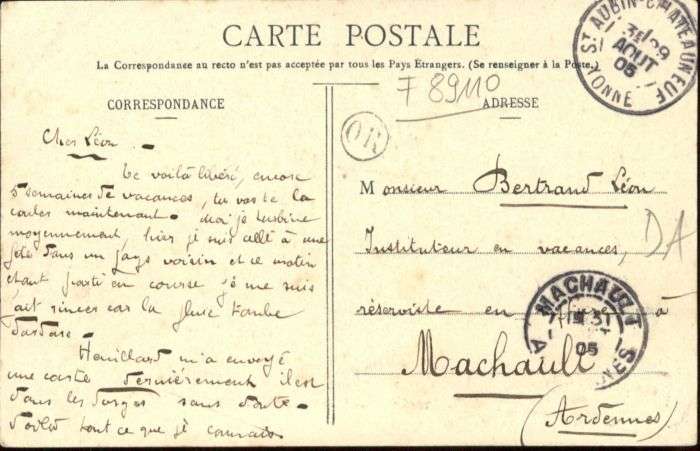 CARTE POSTALE
La Correspondance au recto n'est pas acceptée par tous les Pays Etrangers. (Se renseigner à la Poste.)
F 89110
CORRESPONDANCE
ADRESSE
ST AUBIN-CHATEAUNEUF
AOUT
05
YONNE
OR
Cher Léon. -
Te voilà libéré, encore
5 semaines de vacances, tu vas te la
couler maintenant. Moi je turbine
moyennement, hier je suis allé à une
fête dans un pays voisin et ce matin
étant parti en course je me suis
fait rincer car la pluie tombe
dardare.
Houillard m'a envoyé
une carte dernièrement il est
dans les Vosges sans doute.
Voilà tout ce que je connais
Monsieur Bertrand Léon
Instituteur en vacances,
réserviste en à
Machault
(Ardennes)
DA
MACHAULT
31
05